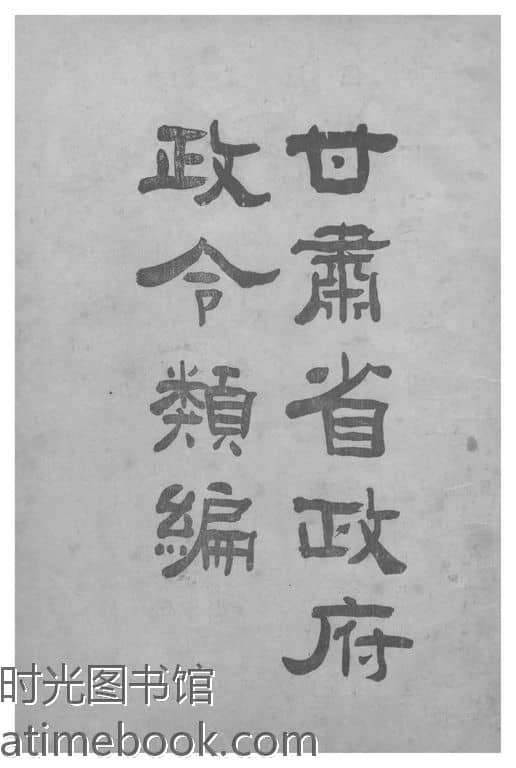 甘肅省政府
政令類編
时光图书馆
atimebook.com